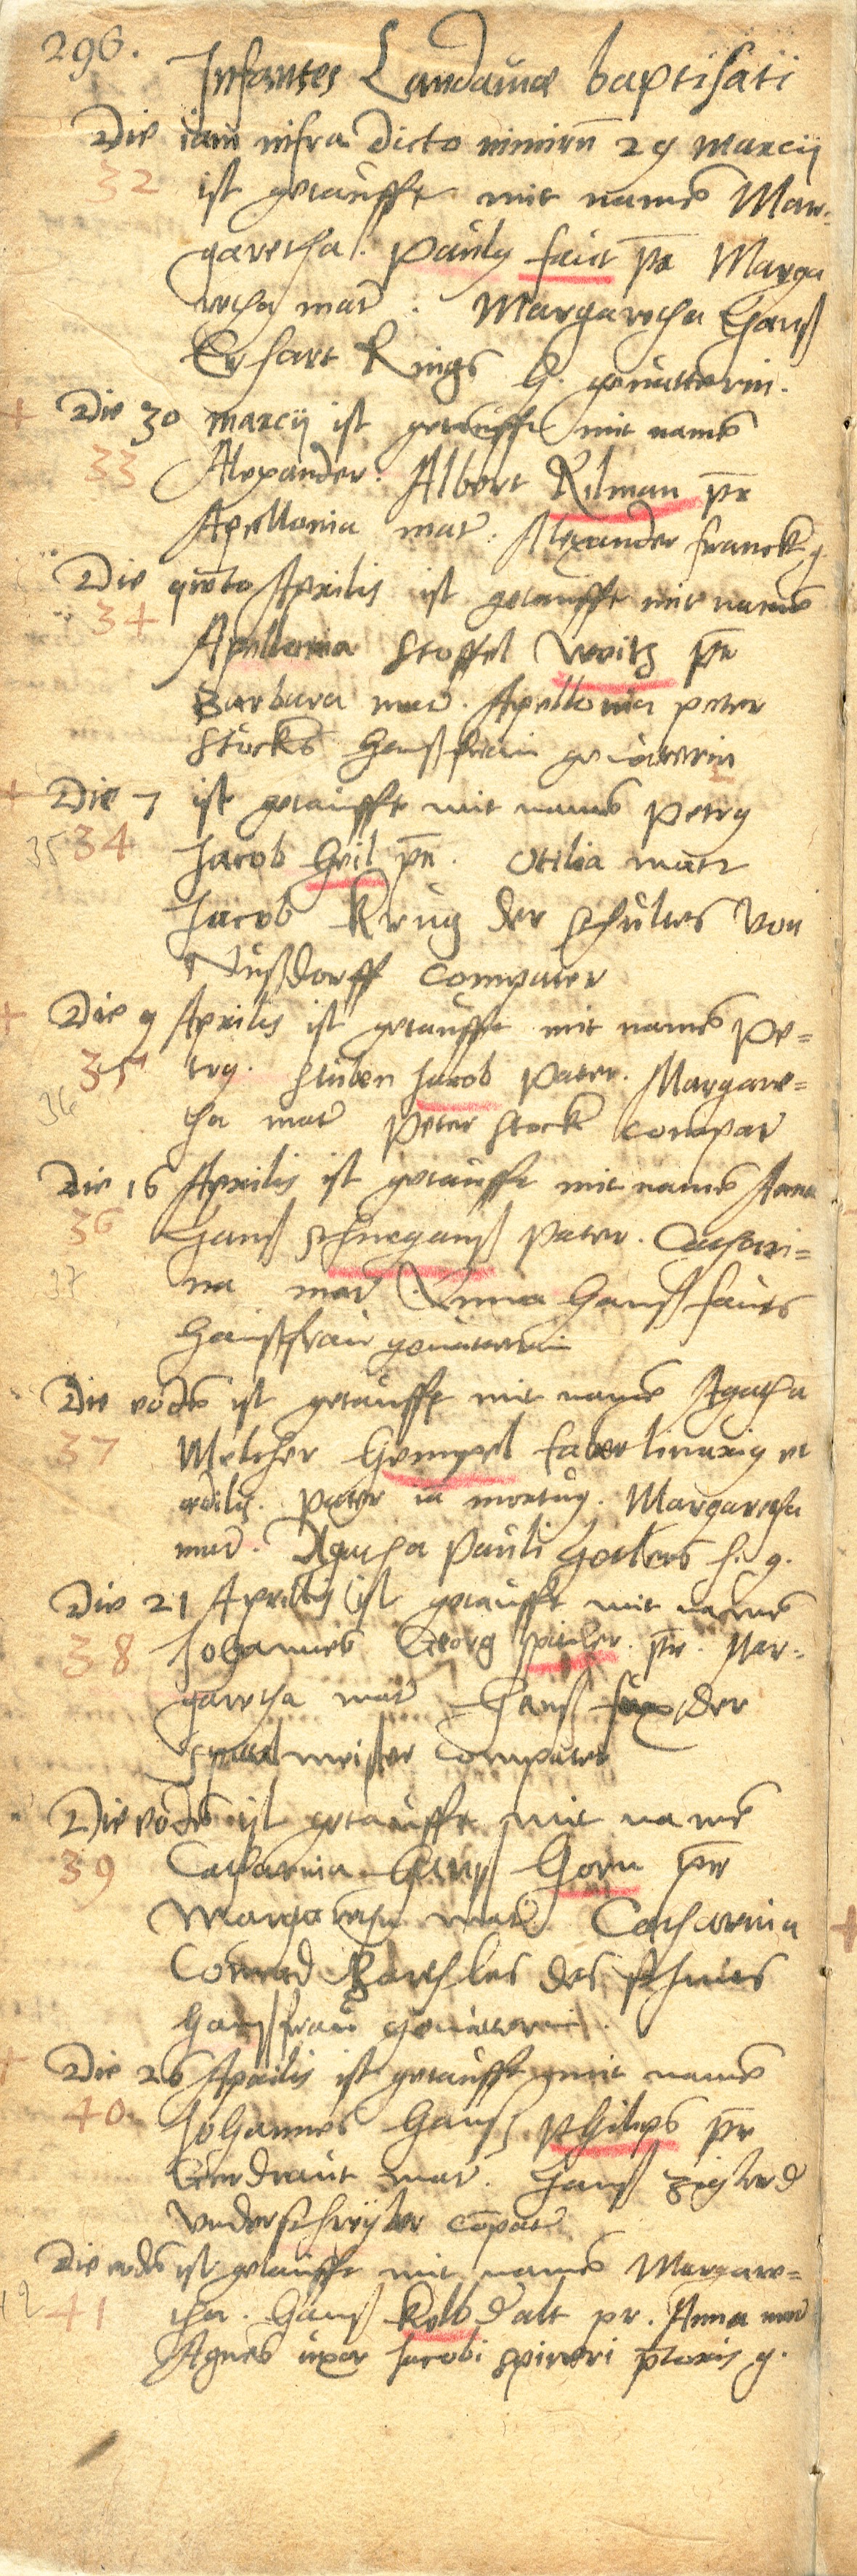 296.
Infantes Landaviæ baptisati
Die iam infra dicto nimirū 29 Marcij
32 ist getaufft mit namē Mar-
garetha. Pauly faut pr Marga
retha mat. Margaretha Hanß
Erhart Rings H. gevatterin.
Die 30 marcij ist getaufft mit namē
33 Alexander. Albert Kilman pr
Apollonia mat. Alexander franck g.
Die Aprilis ist getaufft mit namē
34 Apollonia Stoffel Weitz pr
Barbara mat. Apollonia peter
Stocks Haußfraw gevatterin
Die 7 ist getaufft mit namē petry
35 34 Jacob Geil pr. Otilia matr
Jacob Krug der schultes von
Nußdorff compater
Die 9 Aprilis ist getaufft mit namē Pe-
36 35 try. Stuben Jacob Pater. Margare-
tha mat Peter Stock compat
Die 16 Aprilis ist getaufft mit namē Anna
36 Hanß Schneganß Pater. Cathari-
37 na mat Anna Hanß fauts
Haußfraw gevatterin
Die eodē ist getaufft mit namē Agatha
37 Melcher Gempel faber linarig et
edilis. Pater Margaretha
mat. Agatha Pauli Hockers h. g.
Die 21 Aprilis ist getaufft mit namē
38 Johannes Georg Spitaler pr. Mar-
garetha mat Hanß fux der
Spitalmeister Compater
Die eodē ist getaufft mit namē
39 Catharina Hanß Gorn pr
Margaretha mat Catharina
Conrad des schmits
Haußfraw gevatterin.
Die 26 Aprilis ist getaufft mit namē
40. Johannes Hanß Philips pr
Gerdraut mat. Hanß Zigler d
underschryber cōpat
Die eodē ist getaufft mit namē Margare-
42 41 tha. Hanß Kolb d alt pr. Anna mat
Agnes uxor Jacobi g.